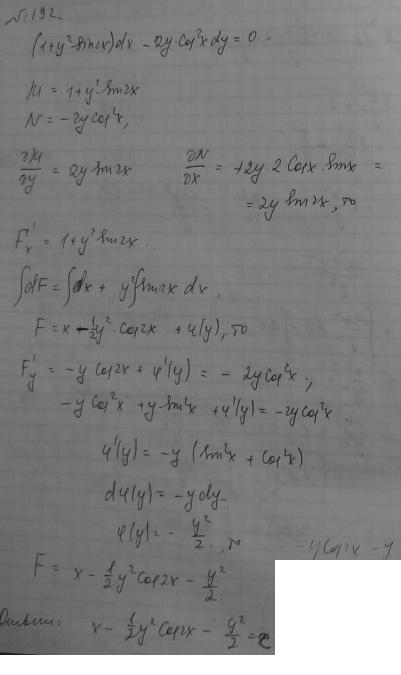 №192.
(1+y² sin2x)dx − 2y·cos²x dy = 0.
M = 1+y² sin2x
N = −2y cos²x,
∂M/∂y = 2y sin2x   ∂N/∂x = +2y·2cosx·sinx =
= 2y sin2x, то
F'ₓ = 1+y² sin2x.
∫dF = ∫dx + y²∫sin2x dx,
F = x − ½y²·cos2x + φ(y), то
F'ᵧ = −y·cos2x + φ'(y) = − 2y cos²x,
−y cos²x + y sin²x + φ'(y) = −2y cos²x.
φ'(y) = −y (sin²x + cos²x).
dφ(y) = −y dy
φ(y) = − y²/2, то
−y cos2x − y
F = x − ½y² cos2x − y²/2.
Ответ: x − ½y² cos2x − y²/2 = c